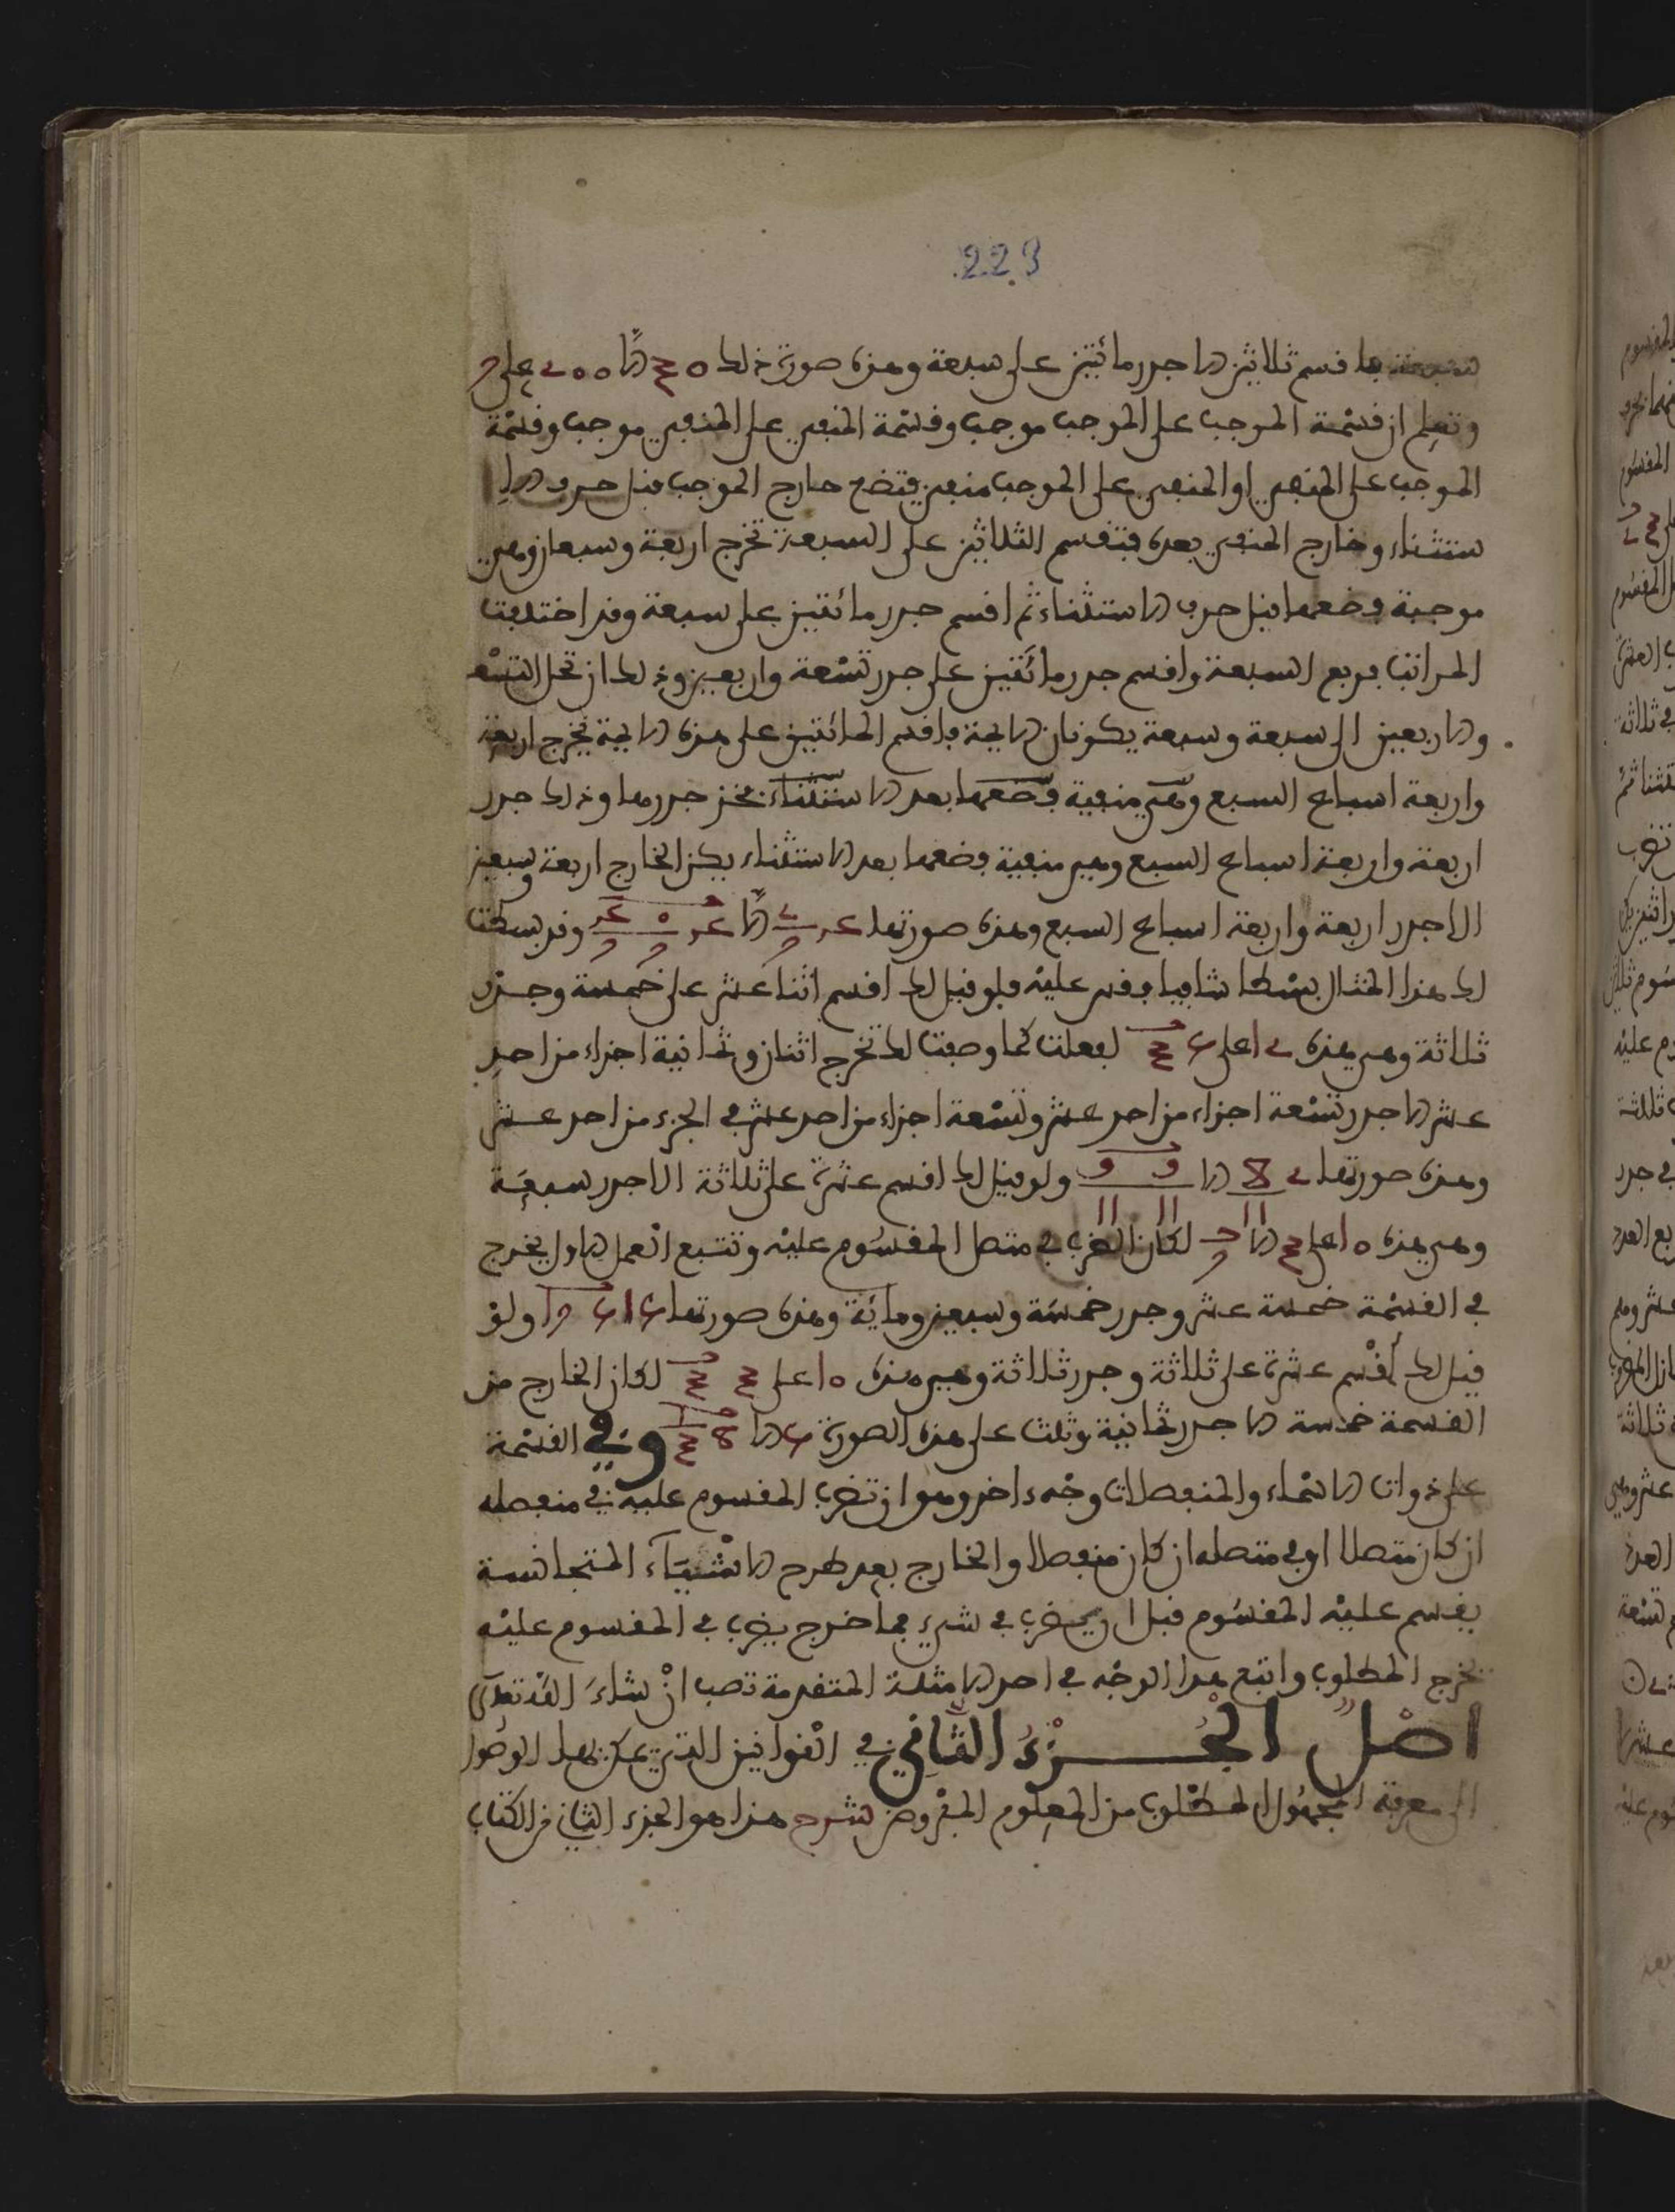 223
فاقسم ثلاثين الا جذر مائتين على سبعة وهذه صورة ذلك 30 الا 200 على 7
وتعلم ان قسمة الموجب على الموجب موجب وقسمة المنفي على المنفي موجب وقسمة
الموجب على المنفي او المنفي على الموجب منفي فتضع خارج الموجب قبل حرف الا
ستثناء وخارج المنفي بعده فتقسم الثلاثين على السبعة تخرج اربعة وسبعان وهي
موجبة فضعها قبل حرف الاستثناء ثم اقسم جذر مائتين على سبعة وقد اختلفت
المراتب فربع السبعة واقسم جذر مائتين على جذر تسعة واربعين وذلك ان تحل التسعة
والاربعين الى سبعة وسبعة يكونان الايمة فاقسم المائتين على هذه الايمة تخرج اربعة
واربعة اسباع السبع وهي منفية فضعها بعد الاستثناء فخذ جذرها وذلك جذر
اربعة واربعة اسباع السبع وهي منفية فضعها بعد الاستثناء يكن الخارج اربعة وسبعين
الا جذر اربعة واربعة اسباع السبع وهذه صورتها 4 2/7 الا 4 0/7 4/7 وقد بسطت
لك هذا المثال بسطا شافيا فقس عليه فلو قيل لك اقسم اثنا عشر على خمسة وجذر
ثلاثة وهي هذه 12 على 5 3 لفعلت كما وصفت لك تخرج اثنان وثمانية اجزاء من احد
عشر الا جذر تسعة اجزاء من احد عشر وتسعة اجزاء من احد عشر في الجزء من احد عشر
وهذه صورتها 2 8/11 الا 9/11 9/11 ولو قيل لك اقسم عشرة على ثلاثة الا جذر سبعة
وهي هذه 10 على 3 الا 7 لكان الضرب في متصل المقسوم عليه وتتبع العمل الاول يخرج
في القسمة خمسة عشر وجذر خمسة وسبعين ومائة وهذه صورتها 15 175 ولو
قيل لك اقسم عشرة على ثلاثة وجذر ثلاثة وهي هذه 10 على 3 3 لكان الخارج من
القسمة خمسة الا جذر ثمانية وثلث على هذه الصورة 5 الا 8 1/3 وفي القسمة
على ذوات الاسماء والمنفصلات وجه ءاخر وهو ان تضرب المقسوم عليه في منفصله
ان كان متصلا او في متصله ان كان منفصلا والخارج بعد طرح الاشياء المتجانسة
يقسم عليه المقسوم قبل ان يضرب في شيء فما خرج يضرب في المقسوم عليه
يخرج المطلوب واتبع هذا الوجه في احد الامثلة المتقدمة تصب ان شاء الله تعلى
اصل الجزء الثاني في القوانين التي يمكن بها الوصول
الى معرفة المجهول المطلوب من المعلوم المفروض شرح هذا هو الجزء الثاني من الكتاب